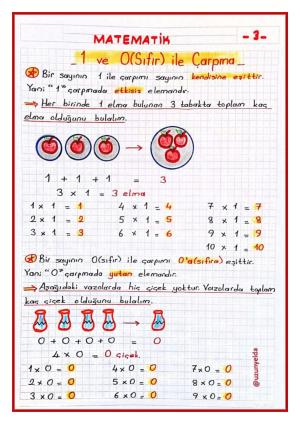 MATEMATİK
-3-
1 ve 0(Sıfır) ile Çarpma
Bir sayının 1 ile çarpımı sayının kendisine eşittir.
Yani "1" çarpmada etkisiz elemandır.
⇒ Her birinde 1 elma bulunan 3 tabakta toplam kaç
elma olduğunu bulalım.
1 + 1 + 1 = 3
3 x 1 = 3 elma
1 x 1 = 1 4 x 1 = 4 7 x 1 = 7
2 x 1 = 2 5 x 1 = 5 8 x 1 = 8
3 x 1 = 3 6 x 1 = 6 9 x 1 = 9
10 x 1 = 10
Bir sayının 0(sıfır) ile çarpımı 0'a(sıfıra) eşittir.
Yani "0" çarpmada yutan elemandır.
⇒ Aşağıdaki vazolarda hiç çiçek yoktur. Vazolarda toplam
kaç çiçek olduğunu bulalım.
0 + 0 + 0 + 0 = 0
4 x 0 = 0 çiçek
1 x 0 = 0 4 x 0 = 0 7 x 0 = 0
2 x 0 = 0 5 x 0 = 0 8 x 0 = 0
3 x 0 = 0 6 x 0 = 0 9 x 0 = 0
@uzunyelda